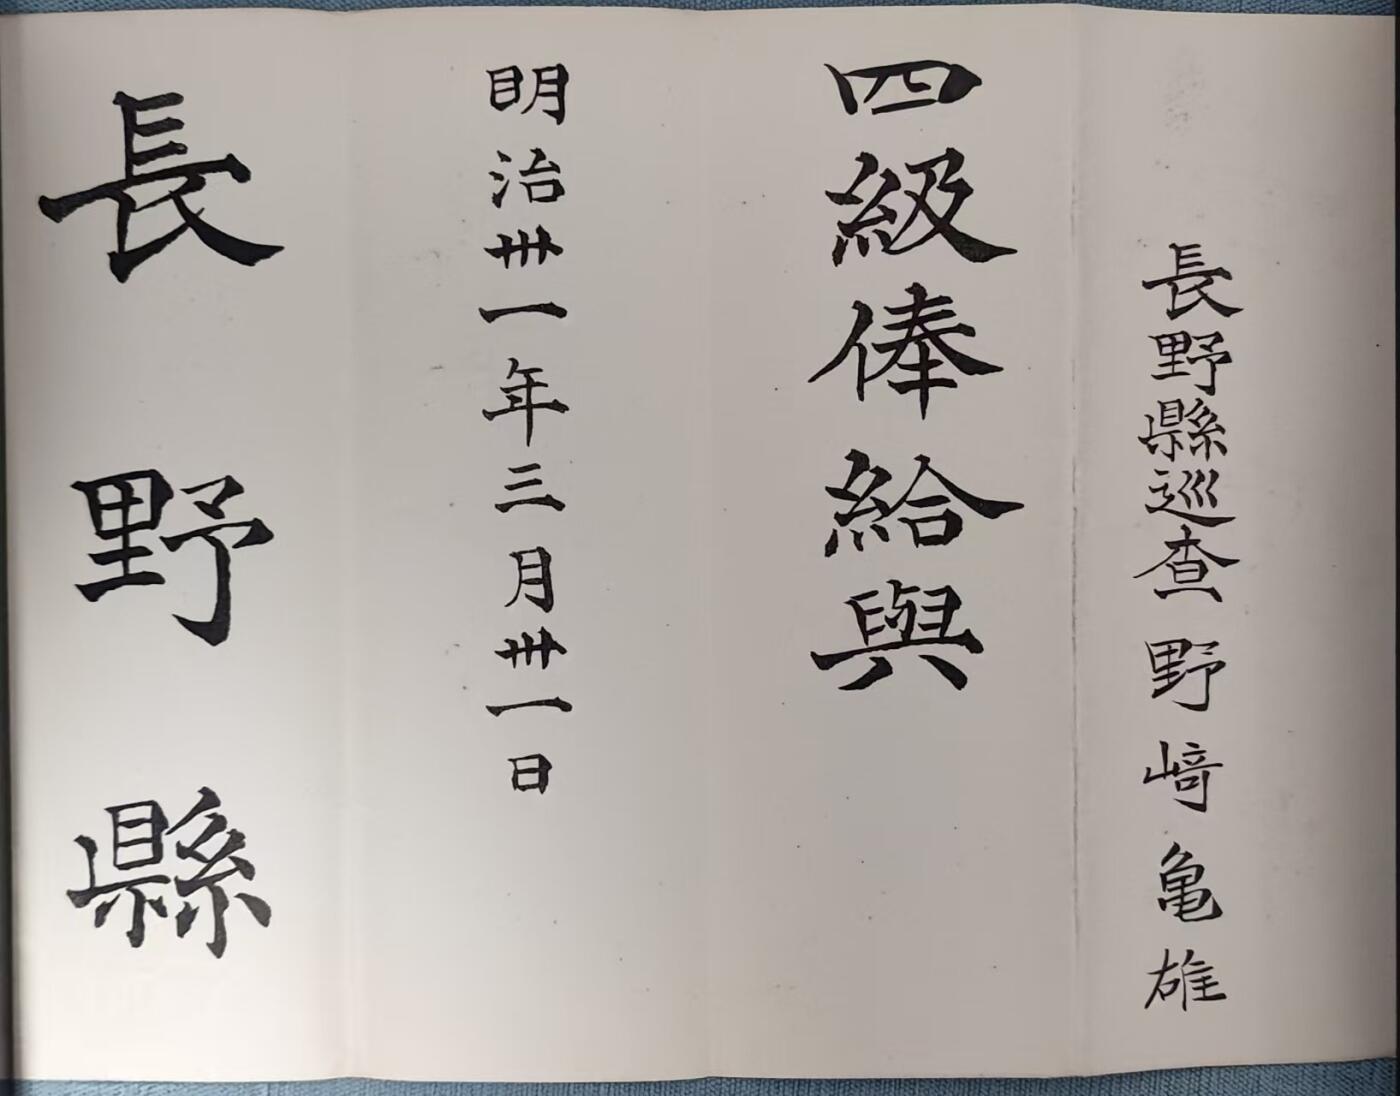 長野縣巡査野﨑亀雄
四級俸給與
明治卅一年三月卅一日
長野縣